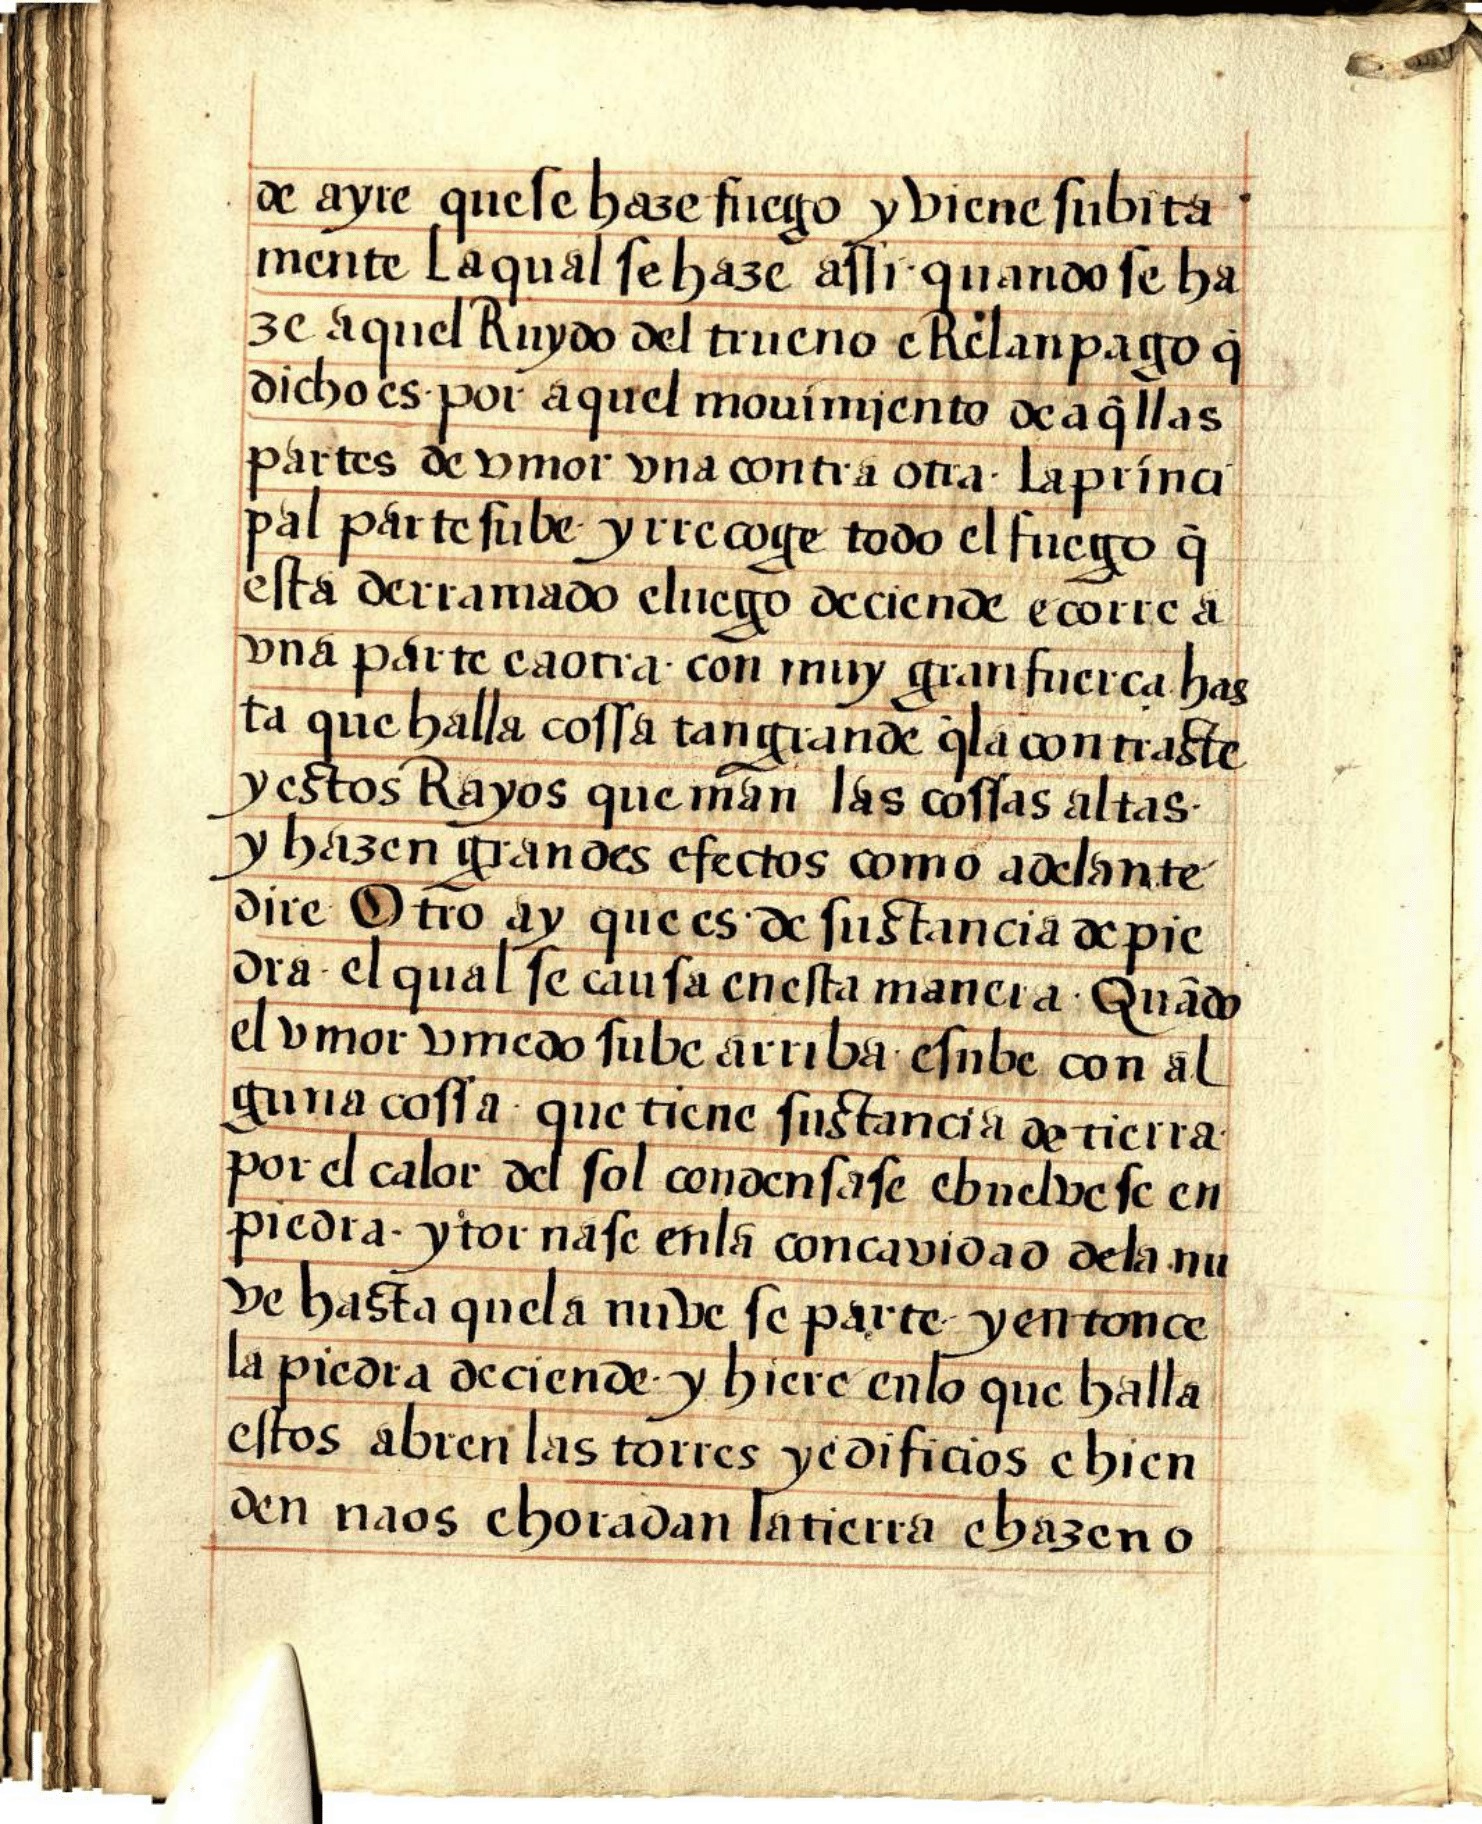 de ayre que se haze fuego y viene subita
mente La qual se haze assi· quando se ha
ze aquel Ruydo del trueno e Relanpago q̄
dicho es· por aquel mouimjento de aq̄llas
partes de vmor vna contra otra· La princi
pal parte sube· y rrecoge todo el fuego q̄
esta derramado e luego deciende e corre a
vna parte e a otra· con muy gran fuerça has
ta que halla cossa tan grande q̄ la contraste
y estos Rayos queman las cossas altas·
y hazen grandes efectos como adelante
dire· Otro ay que es· de sustancia de pie
dra· el qual se causa en esta manera· Quādo
el vmor vmedo sube arriba· e sube con al
guna cossa· que tiene sustancia de tierra·
por el calor del sol condensase e buelvese en
piedra· y tornase en la concavidad de la nu
ve hasta que la nuve se parte· y entonce
la piedra deciende· y hiere en lo que halla
estos abren las torres y edificios e hien
den naos e horadan la tierra e hazen o